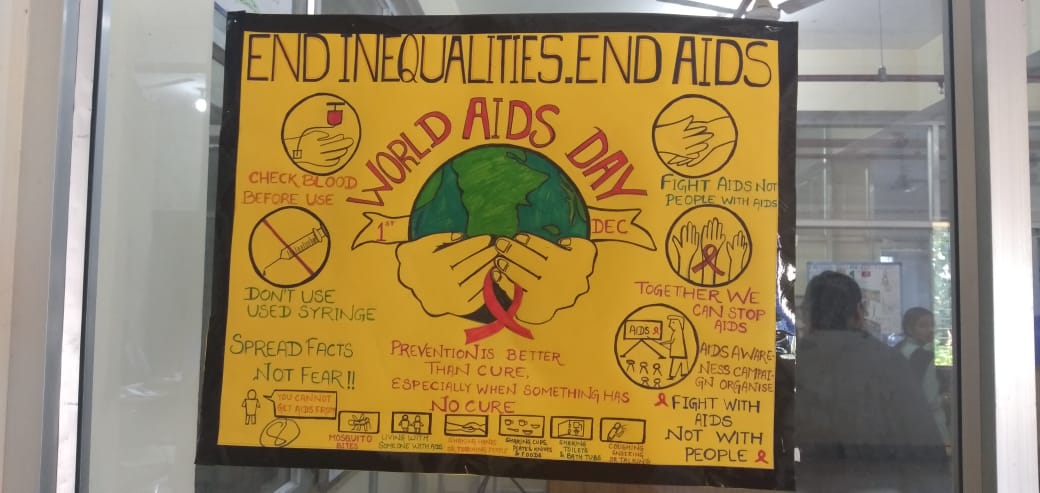 END INEQUALITIES.END AIDS
WORLD AIDS DAY
1ST DEC
CHECK BLOOD
BEFORE USE
DON'T USE
USED SYRINGE
SPREAD FACTS
NOT FEAR!!
YOU CANNOT
GET AIDS FROM
MOSQUITO
BITES
LIVING WITH
SOMEONE WITH AIDS
SHAKING HANDS
OR TOUCHING PEOPLE
SHARING CUPS,
PLATES, KNIVES
& FOODS
SHARING
TOILETS
& BATH TUBS
COUGHING
SNEEZING
OR TALKING
PREVENTION IS BETTER
THAN CURE,
ESPECIALLY WHEN SOMETHING HAS
NO CURE
FIGHT AIDS NOT
PEOPLE WITH AIDS
TOGETHER WE
CAN STOP
AIDS
AIDS
AIDS AWARE-
NESS CAMPAI-
GN ORGANISE
FIGHT WITH
AIDS
NOT WITH
PEOPLE